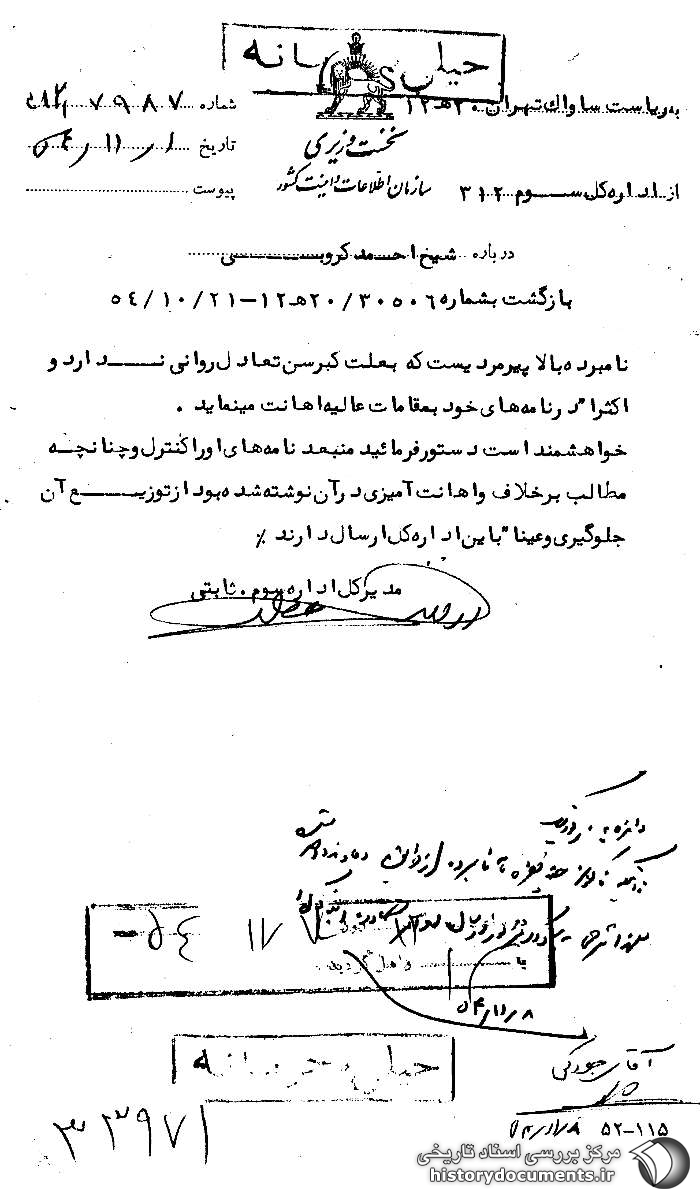 خیلی محرمانه
به ریاست ساواک تهران ۲۰ هـ ۱۲
شماره ۷۹۸۷ / ۳۱۲
نخست وزیری
تاریخ ۱ / ۱۱ / ۵۴
سازمان اطلاعات و امنیت کشور
از اداره کل سوم ۳۱۲
پیوست
درباره شیخ احمد کروبی
بازگشت بشماره ۳۰۵۰۶ / ۲۰ هـ ۱۲ - ۵۴/۱۰/۲۱
نامبرده بالا پیرمردیست که بعلت کبرسن تعادل روانی ندارد و
اکثرا" در نامه‌های خود بمقامات عالیه اهانت مینماید .
خواهشمند است دستور فرمائید منبعد نامه‌های او را کنترل و چنانچه
مطالب برخلاف و اهانت آمیزی در آن نوشته شده بود از توزیع آن
جلوگیری و عینا" باین اداره کل ارسال دارند ٪
مدیرکل اداره سوم . ثابتی
۵۴ ۱۱ ۷
واصل گردید .
۵۴/۱۱/۸
خیلی محرمانه
آقای
۵۲-۱۱۵
۳۳۹۷۱
مرکز بررسی اسناد تاریخی
historydocuments.ir